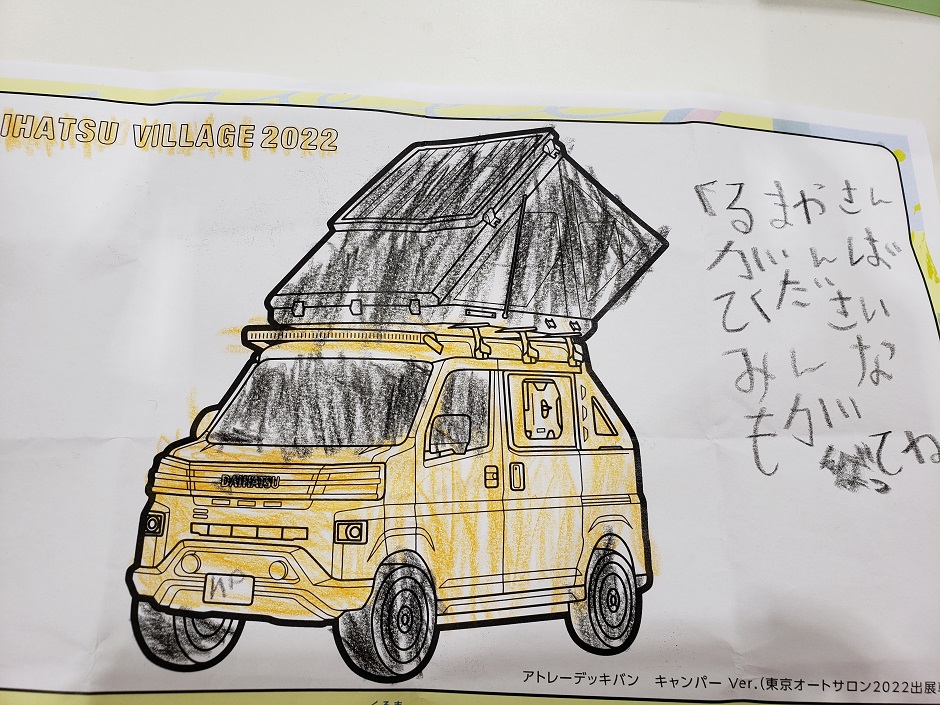 IHATSU VILLAGE 2022
くるまやさん
がんば
てください
みんな
もが てね
DAIHATSU
アトレーデッキバン　キャンパー Ver.（東京オートサロン2022出展